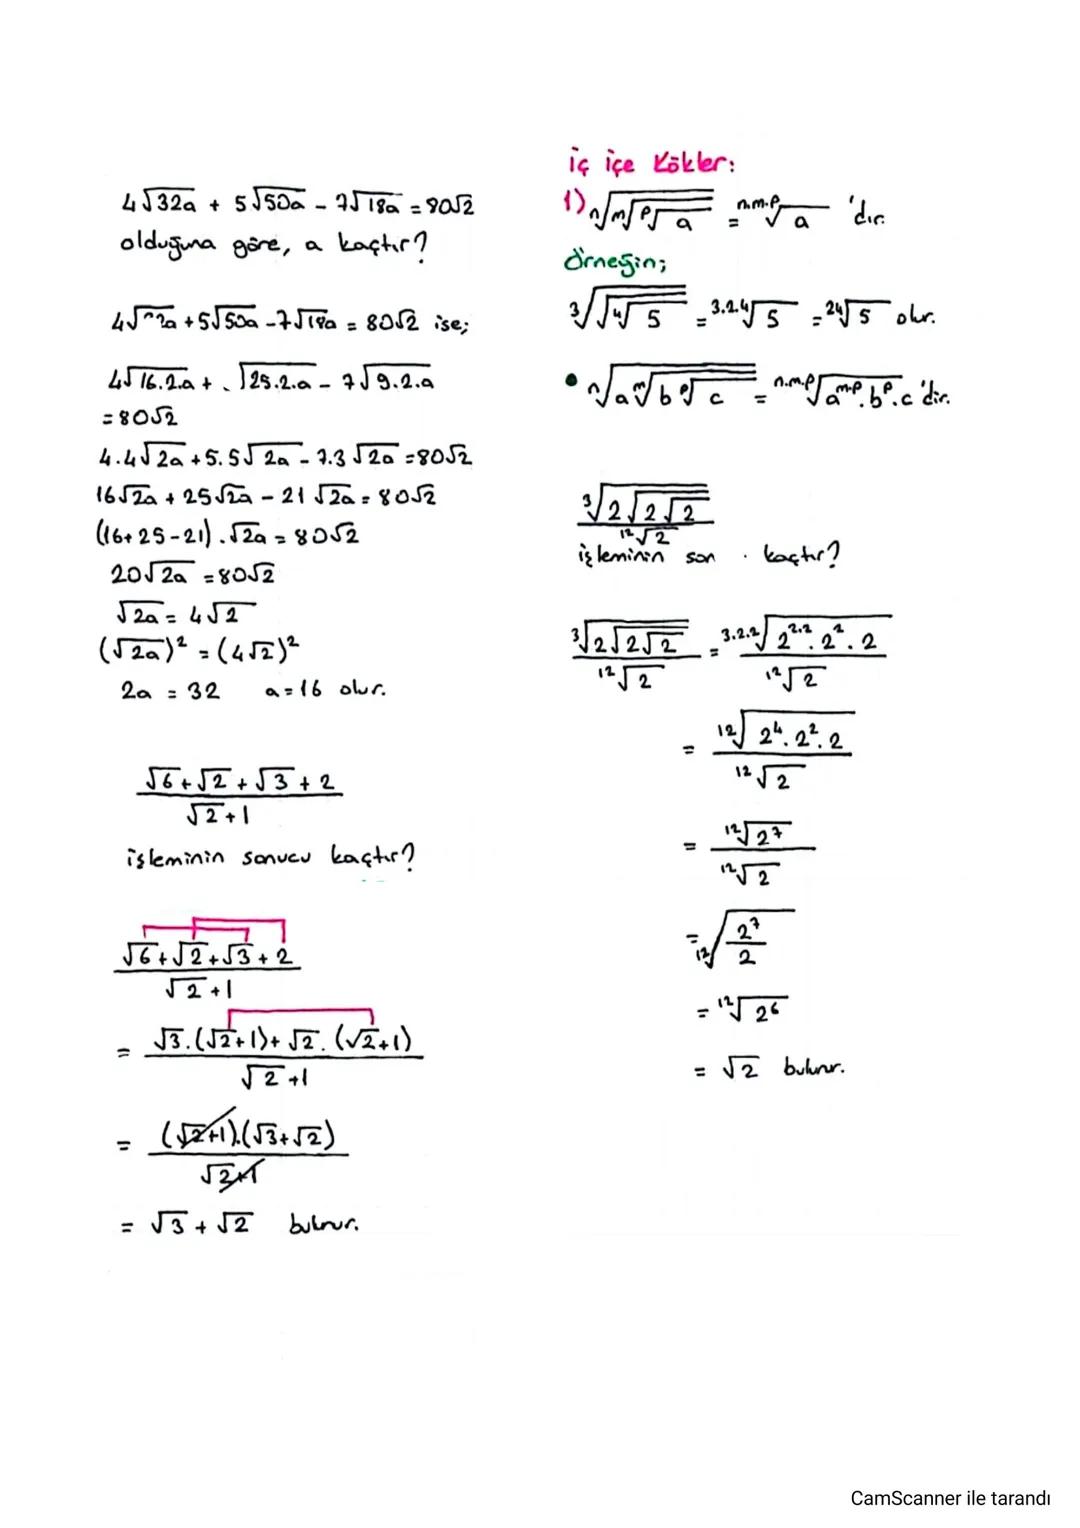 4√32a + 5√50a - 7√18a = 80√2
olduğuna göre, a kaçtır?
4√32a + 5√50a - 7√18a = 80√2 ise;
4√16.2.a + √25.2.a - 7√9.2.a
= 80√2
4.4√2a + 5.5√2a - 7.3√2a = 80√2
16√2a + 25√2a - 21√2a = 80√2
(16+25-21).√2a = 80√2
20√2a = 80√2
√2a = 4√2
(√2a)² = (4√2)²
2a = 32 a = 16 olur.
√6+√2+√3+2
√2+1
işleminin sonucu kaçtır?
√6+√2+√3+2
√2+1
= √3.(√2+1)+√2.(√2+1)
√2+1
= (√2+1).(√3+√2)
√2+1
= √3+√2 bulunur.
iç içe Kökler:
1) ⁿ√ᵐ√ᵖ√a = ⁿ·ᵐ·ᵖ√a 'dır.
Örneğin;
³√√⁴√5 = ³·²·⁴√5 = ²⁴√5 olur.
• ⁿ√aᵐ√bᵖ√c = ⁿ·ᵐ·ᵖ√aᵐ·ᵖ.bᵖ.c 'dir.
³√2√2√2
¹²√2
işleminin son kaçtır?
³√2√2√2 = ³·²·²√2²·².2².2
¹²√2 ¹²√2
= ¹²√2⁴.2².2
¹²√2
= ¹²√2⁷
¹²√2
= ¹²√2⁷
2
= ¹²√2⁶
= √2 bulunur.
CamScanner ile tarandı